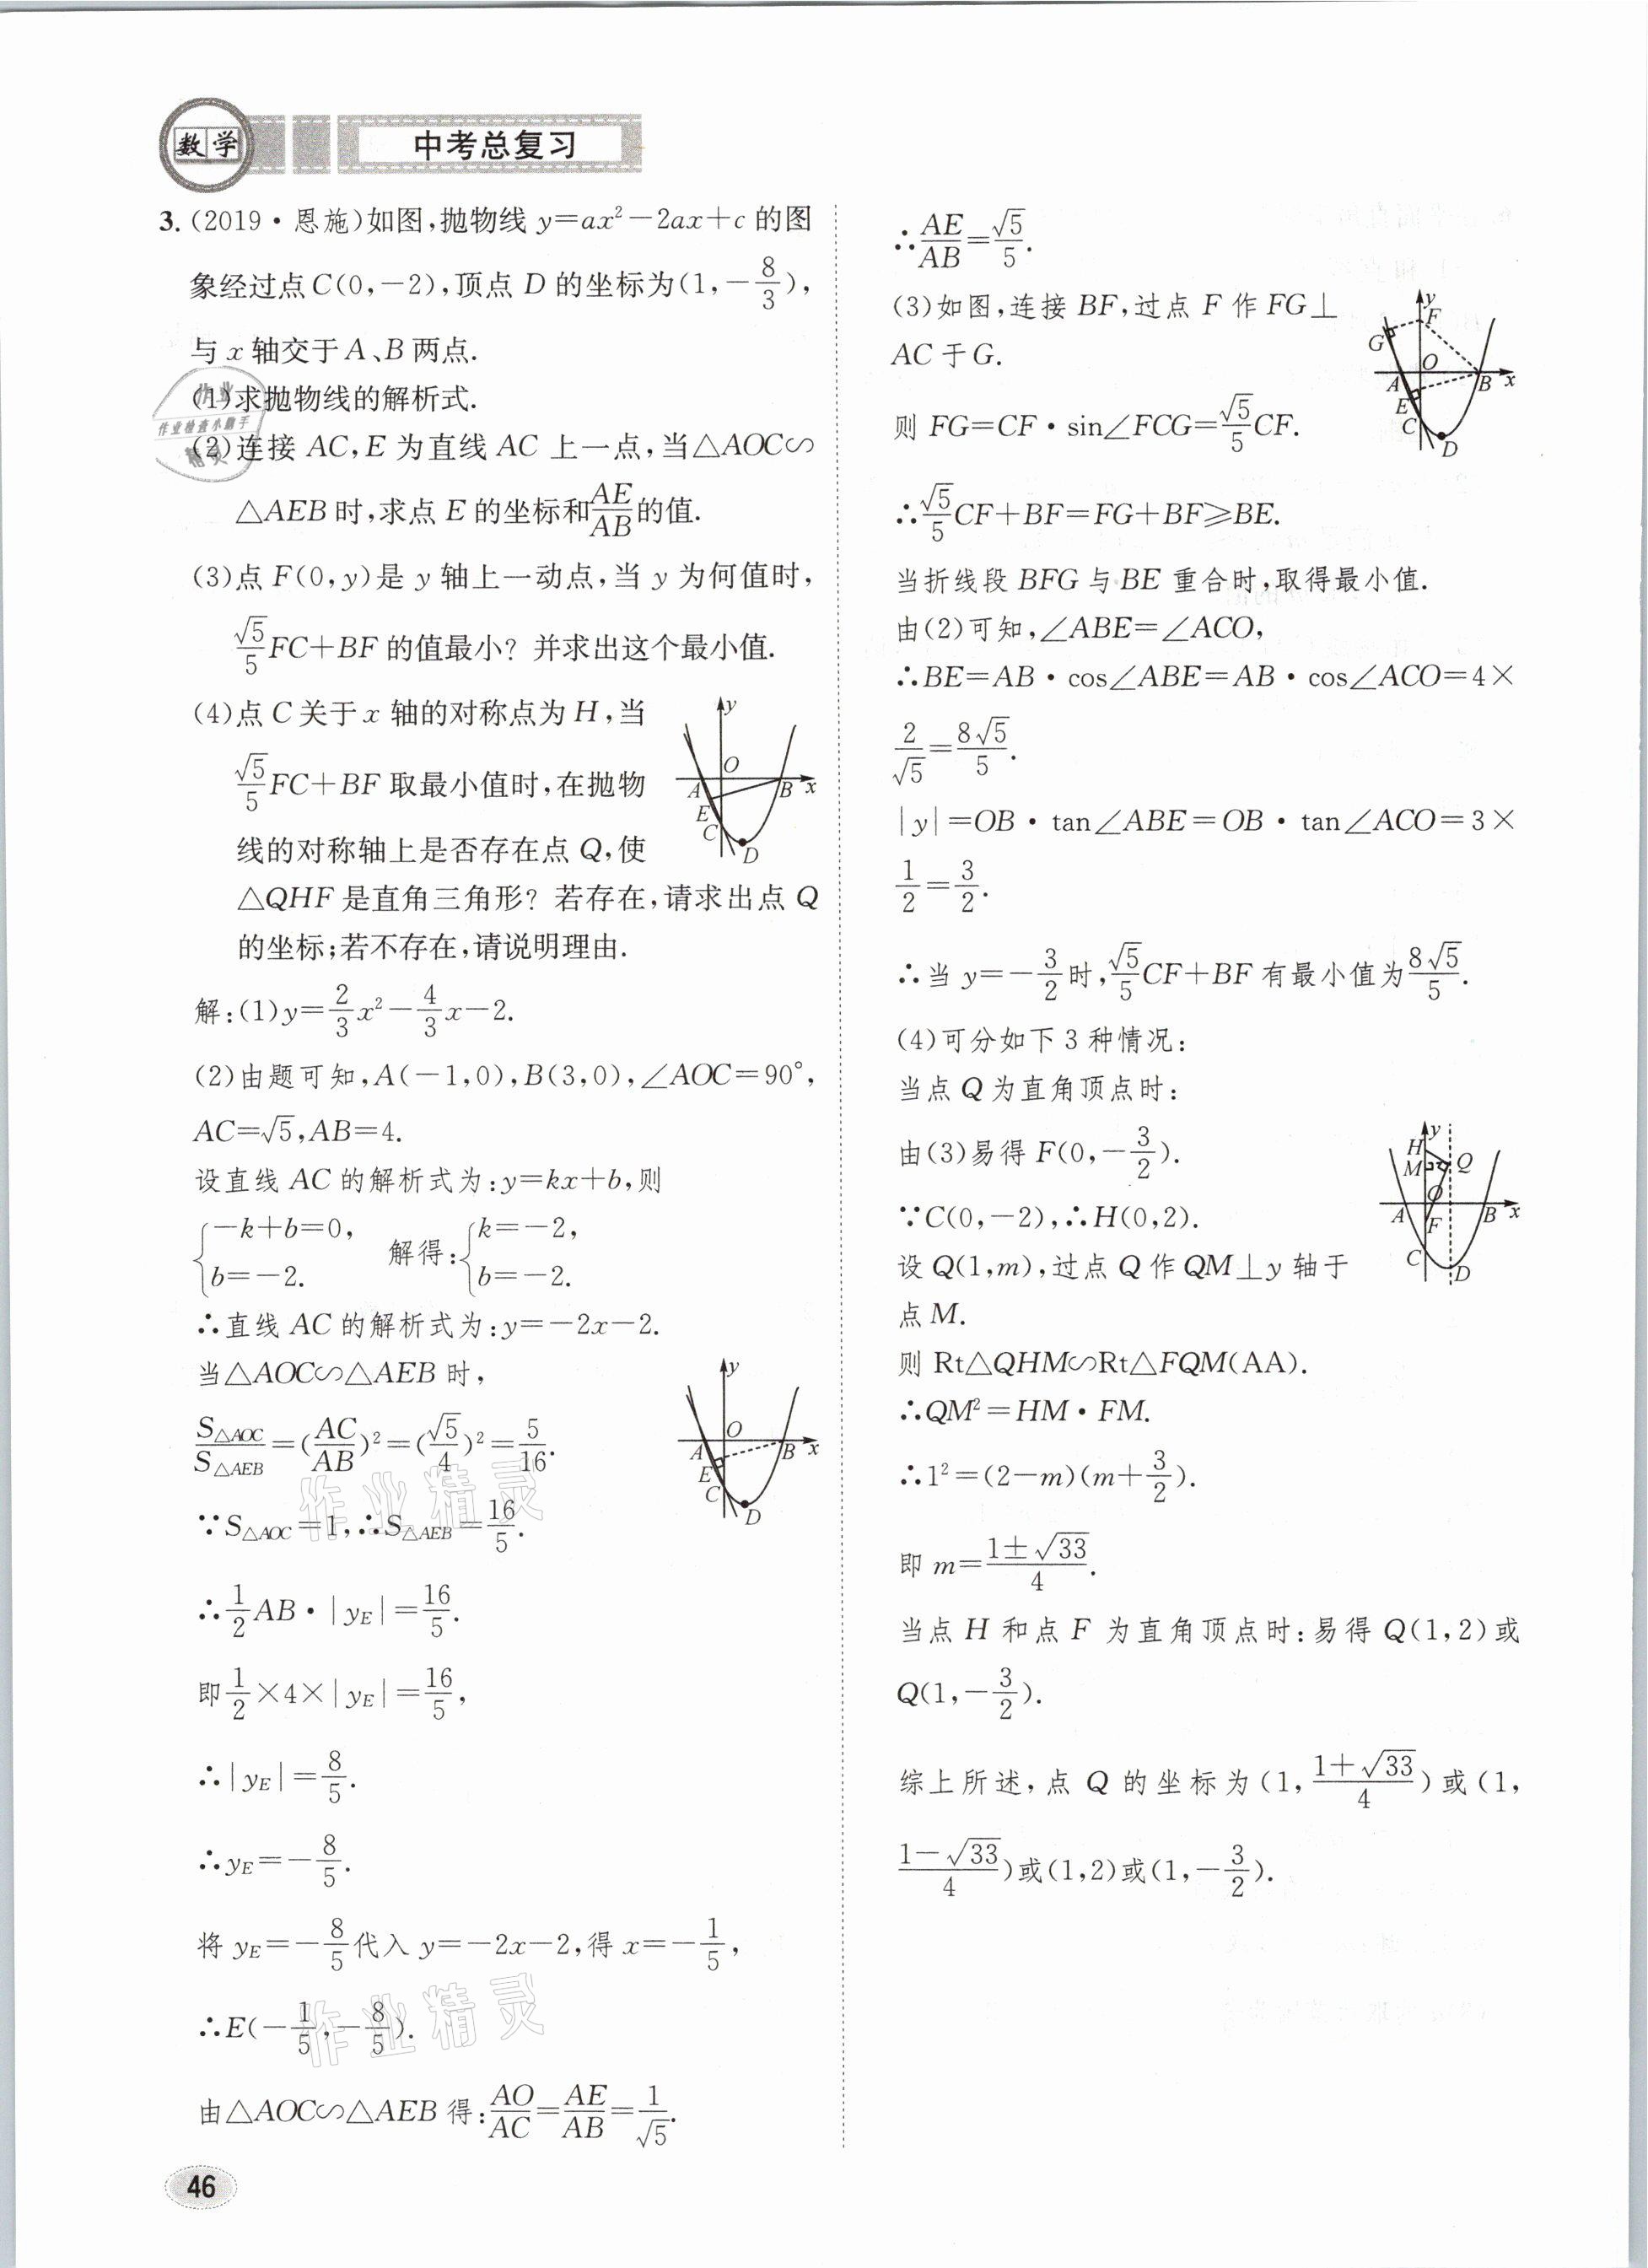 数学 中考总复习
3.(2019·恩施)如图,抛物线 y=ax²-2ax+c 的图
象经过点C(0,-2),顶点 D 的坐标为(1,-8/3),
与 x 轴交于 A、B 两点.
(1)求抛物线的解析式.
(2)连接 AC,E 为直线 AC 上一点,当△AOC∽
△AEB时,求点 E 的坐标和AE/AB的值.
(3)点 F(0,y)是 y 轴上一动点,当 y 为何值时,
√5/5FC+BF 的值最小?并求出这个最小值.
(4)点 C 关于 x 轴的对称点为 H,当
√5/5FC+BF 取最小值时,在抛物
线的对称轴上是否存在点 Q,使
△QHF 是直角三角形?若存在,请求出点 Q
的坐标;若不存在,请说明理由.
y
O
A
B
x
E
C
D
解:(1)y=2/3x²-4/3x-2.
(2)由题可知,A(-1,0),B(3,0),∠AOC=90°,
AC=√5,AB=4.
设直线 AC 的解析式为:y=kx+b,则
{-k+b=0, b=-2. 解得:{k=-2, b=-2.
∴直线 AC 的解析式为:y=-2x-2.
当△AOC∽△AEB 时,
S△AOC/S△AEB=(AC/AB)²=(√5/4)²=5/16.
∵S△AOC=1,∴S△AEB=16/5.
y
O
A
B
x
E
C
D
∴1/2AB·|yE|=16/5.
即1/2×4×|yE|=16/5,
∴|yE|=8/5.
∴yE=-8/5.
将 yE=-8/5代入 y=-2x-2,得 x=-1/5,
∴E(-1/5,-8/5).
由△AOC∽△AEB 得:AO/AC=AE/AB=1/√5.
46
∴AE/AB=√5/5.
(3)如图,连接 BF,过点 F 作 FG⊥
AC 于G.
则 FG=CF·sin∠FCG=√5/5CF.
y
F
G
O
A
B
x
E
C
D
∴√5/5CF+BF=FG+BF≥BE.
当折线段 BFG 与 BE 重合时,取得最小值.
由(2)可知,∠ABE=∠ACO,
∴BE=AB·cos∠ABE=AB·cos∠ACO=4×
2/√5=8√5/5.
|y|=OB·tan∠ABE=OB·tan∠ACO=3×
1/2=3/2.
∴当 y=-3/2时,√5/5CF+BF 有最小值为8√5/5.
(4)可分如下 3 种情况:
当点 Q 为直角顶点时:
由(3)易得 F(0,-3/2).
∵C(0,-2),∴H(0,2).
设 Q(1,m),过点 Q 作 QM⊥y 轴于
点 M.
y
H
M
Q
O
A
F
B
x
C
D
则 Rt△QHM∽Rt△FQM(AA).
∴QM²=HM·FM.
∴1²=(2-m)(m+3/2).
即 m=1±√33/4.
当点 H 和点 F 为直角顶点时:易得 Q(1,2)或
Q(1,-3/2).
综上所述,点 Q 的坐标为(1,1+√33/4)或(1,
1-√33/4)或(1,2)或(1,-3/2).
作业
作业检查小助手
精灵
作业精灵
作业精灵